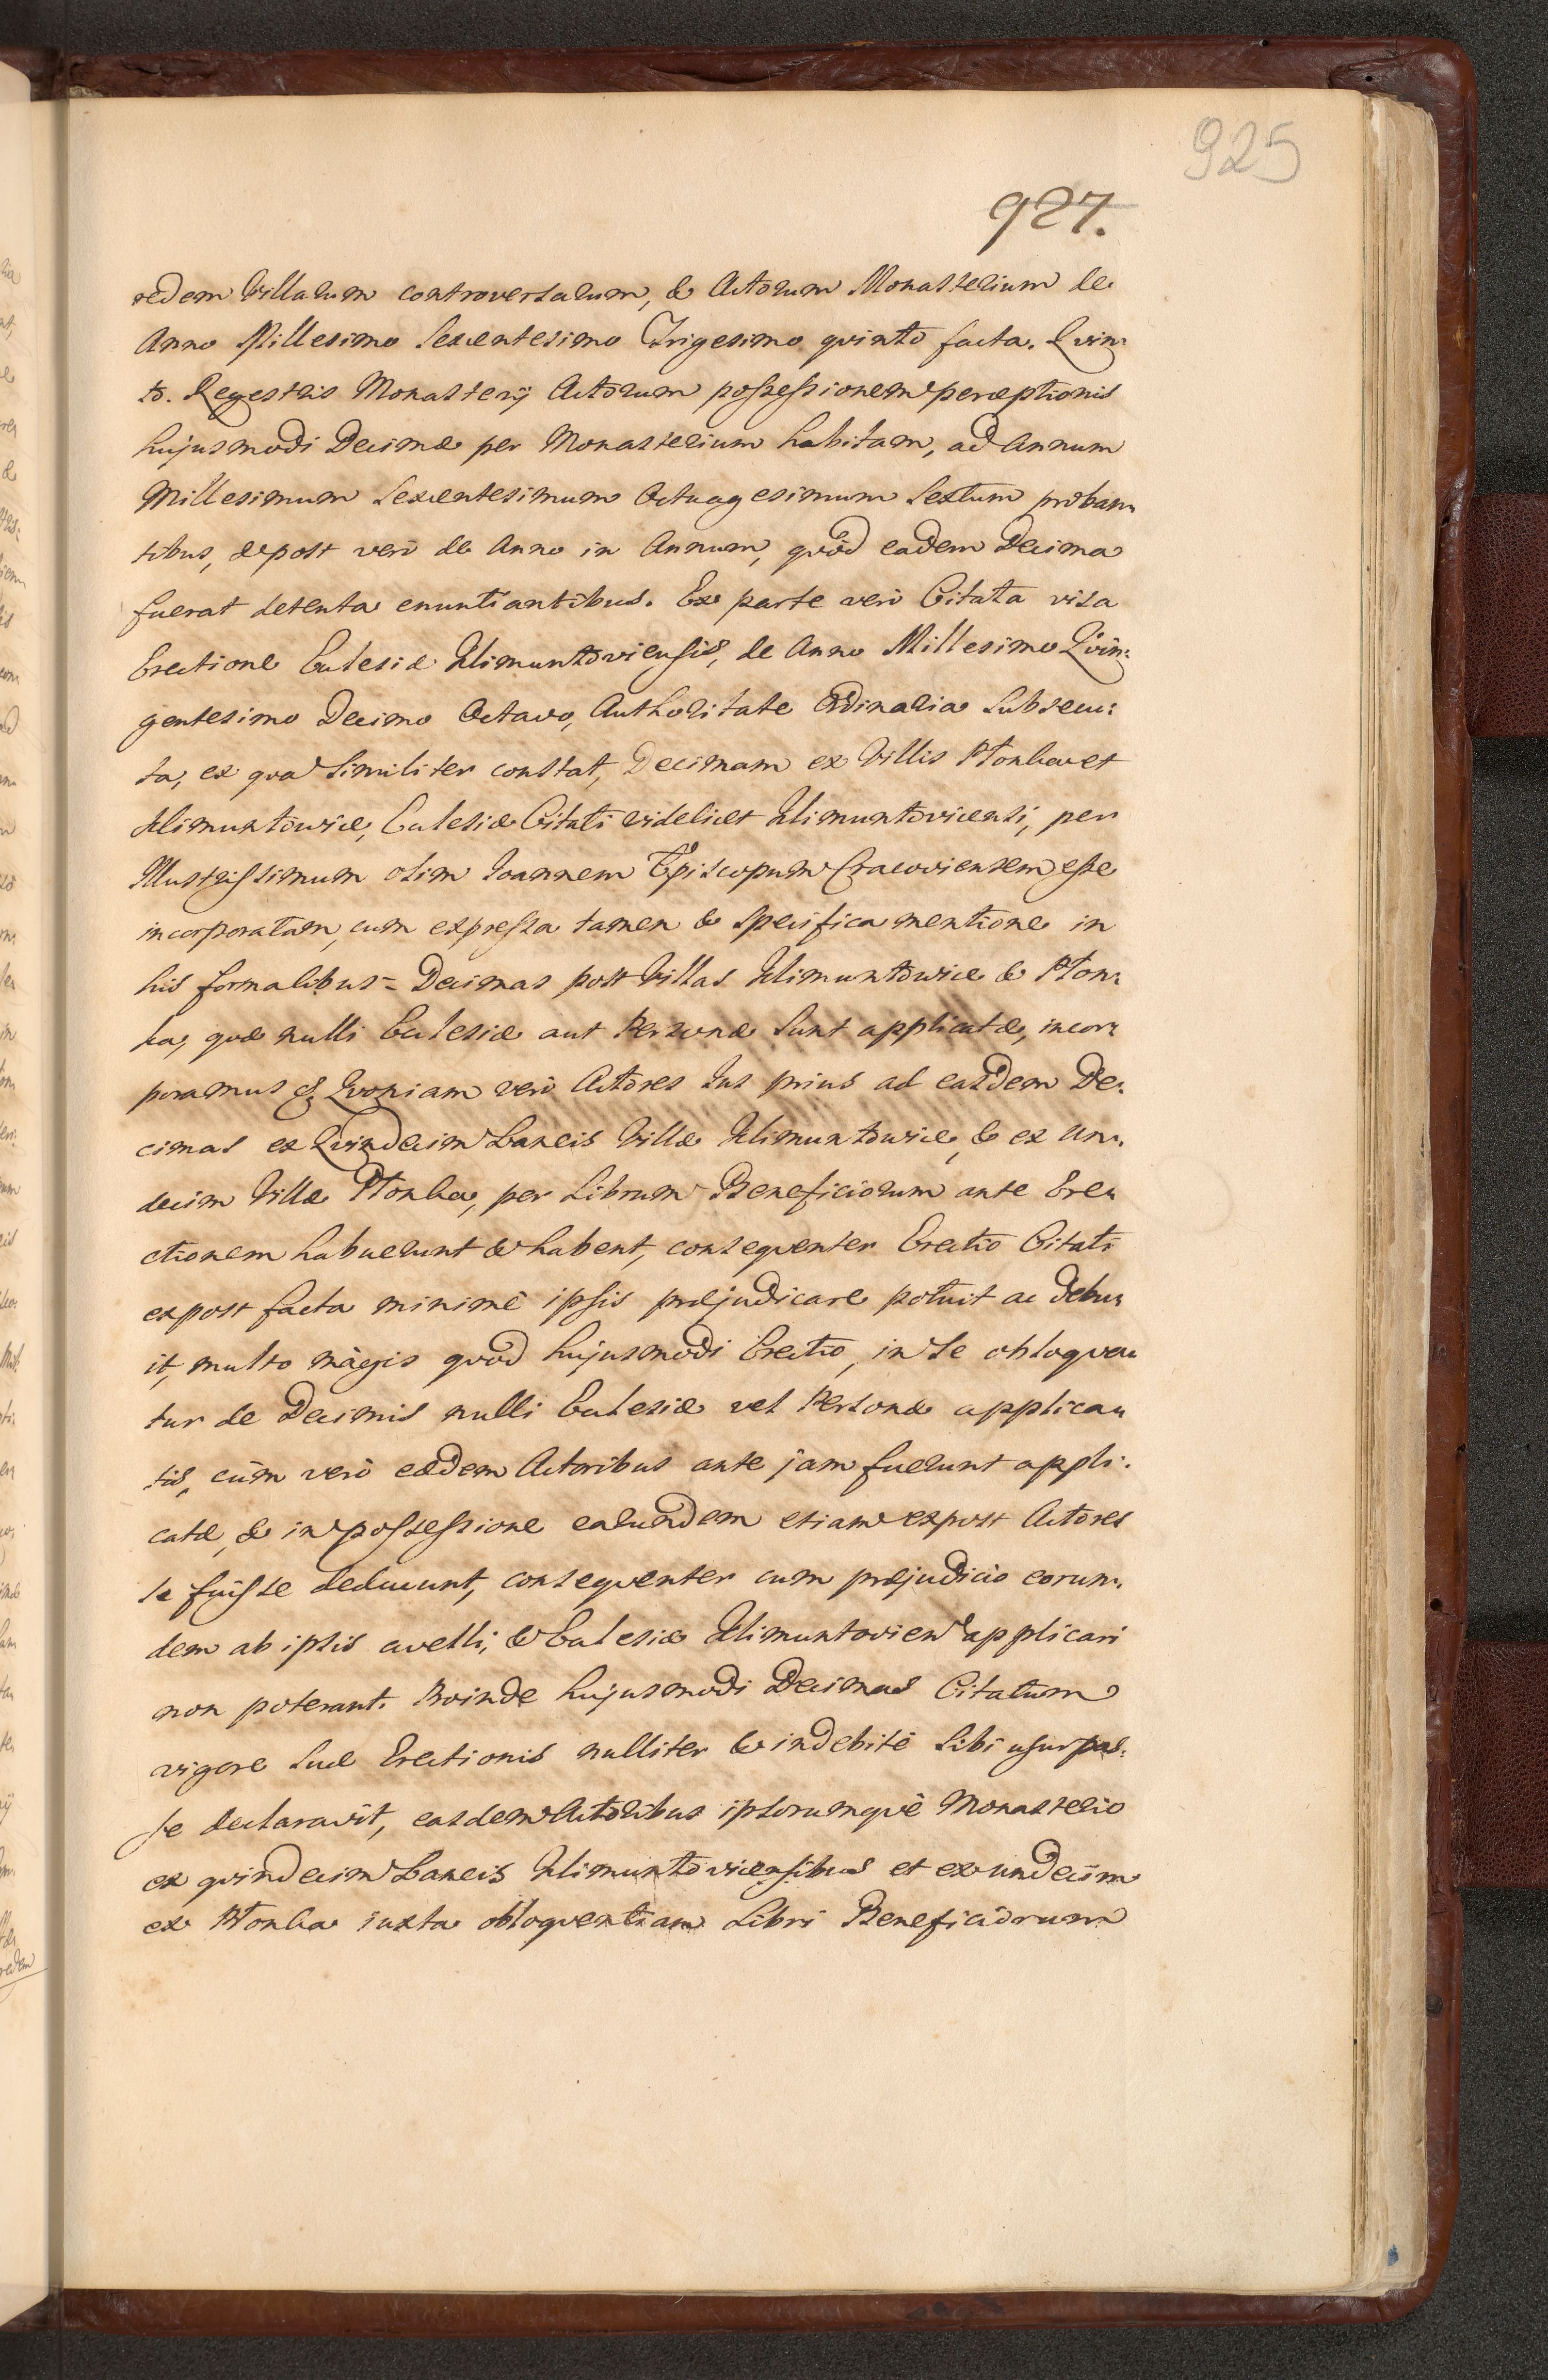 925
927.
redem Villarum controversarum, & Actorum Monasterium de
Anno Millesimo Sexentesimo Trigesimo quinto facta. Qvin:
to. Regestris Monasterij Actorum possessionem perceptionis
hujusmodi Decimæ per Monasterium habitam, ad Annum
Millesimum Sexentesimum Octuagesimum Sextum proban:
tibus, expost verò de Anno in Annum, qvòd eadem Decima
fuerat detenta enuntiantibus. Ex parte verò Citata visa
Erectione Ecclesiæ Klimuntoviensis, de Anno Millesimo Qvin:
gentesimo Decimo Octavo, Authoritate Ordinaria Subsecu:
ta, ex qva Similiter constat, Decimam ex Villis Płonka et
Klimuntowice, Ecclesiæ Citati videlicet Klimuntoviensi, per
Illustrissimum olim Joannem Episcopum Cracoviensem esse
incorporatam, cum expressa tamen & Specifica mentione in
his formalibus = Decimas post Villas Klimuntowice & Płon:
ka, qvæ nulli Ecclesiæ aut Personæ Sunt applicatæ, incor:
poramus & Qvoniam verò Actores Jus prius ad easdem De:
cimas ex Qvindecim Laneis Villæ Klimuntowice, & ex Un:
decim Villæ Płonka, per Librum Beneficiorum ante Ere:
ctionem habuerunt & habent, conseqventer Erectio Citati
expost facta minimè ipsis præjudicare potuit ac debu:
it, multo màgis qvòd hujusmodi Erectio, in Se obloqva:
tur de Decimis nulli Ecclesiæ vel Personæ applica:
tis, cùm verò eædem Actoribus ante jam fuerunt appli:
catæ, & in possessione earundem etiam expost Actores
Se fuisse deducunt, conseqventer cum præjudicio eorun:
dem ab ipsis avelli, & Ecclesiæ Klimuntovien applicari
non poterant. Proinde hujusmodi Decimas Citatum
vigore Suæ Erectionis nulliter & indebitè Sibi usurpas:
se declaravit, easdem Actoribus ipsorumqvè Monasterio
ex qvindecim Laneis Klimuntoviensibus et ex undecim
ex Płonka iuxta obloqventiam Libri Beneficiorum